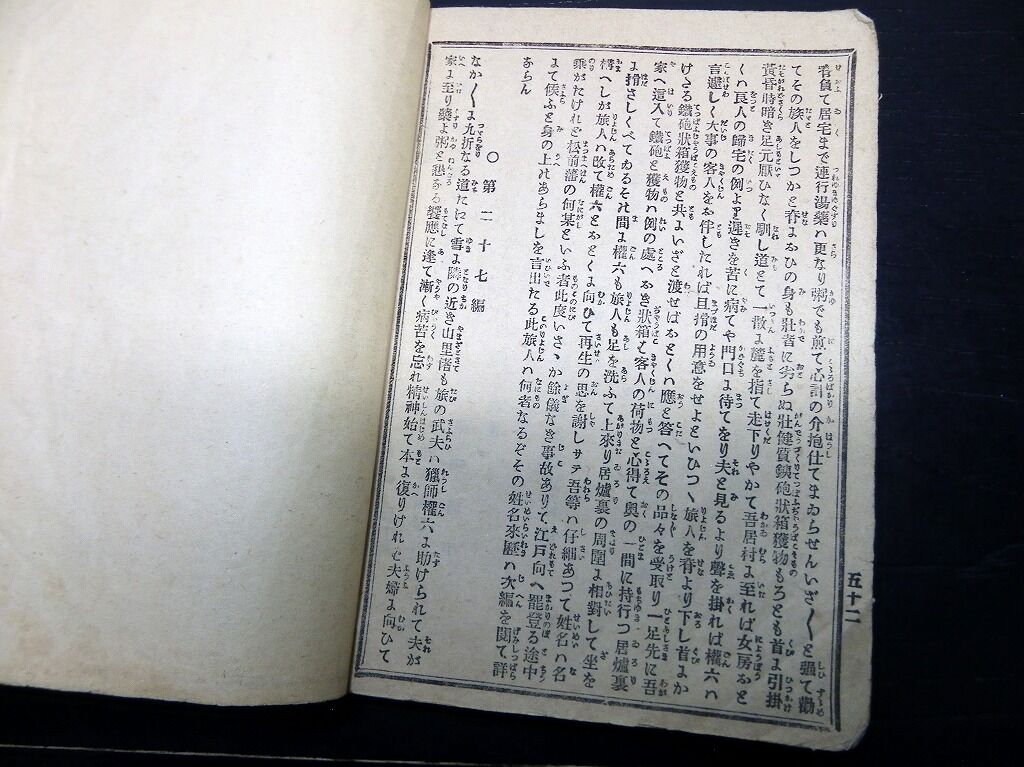 脊負て居宅まで連行湯藥ハ更なり粥でも煎て心計の介抱仕てまゐらせんいざ〱と强て勸
てその旅人をしつかと脊ょおひの身も壯者に劣らぬ壯健質鐵砲狀箱獲物もろとも首ょ引掛
黃昏時暗き足元厭ひなく馴し道とて一散ょ麓を指て走下りやがて吾居村ょ至れば女房おと
くハ良人の歸宅の例より遲きを苦に病てや門口ょ待てをり夫と見るより聲を掛れば權六ハ
言遽しく大事の客人をお伴したれば且揩の用意をせよといひつゝ旅人を脊より下し首ょか
けたる鐵砲狀箱獲物と共ょいざと渡せばおとくハ應と答へてその品々を受取り一足先に吾
家へ這入て鐵砲と獲物ハ例の處へおき狀箱と客人の荷物と心得て奧の一間に持行つ居爐裏
ょ揩さしくべてゐるその間ょ權六も旅人も足を洗ふて上來り居爐裏の周圍ょ相對して坐を
構へしが旅人ハ改て權六とおとくょ向ひて再生の恩を謝しサテ吾等ハ仔細あつて姓名ハ名
乘がたけれど松前藩の何某といふ者此度いさゝか餘儀なき事故ありて江戶向へ罷登る途中
ょて候ふと身の上のあらましを言出たる此旅人ハ何者なるぞその姓名來歷ハ次編を閱て詳
ならん
○第二十七編
なか〱ょ九折なる道たにて雪ょ隣の近き山里偖も旅の武夫ハ獵師權六ょ助けられて夫が
家ょ至り藥よ粥と懇なる饗應に逢て漸く病苦を忘れ精神始て本ょ復りければ夫婦ょ向ひて
五十二